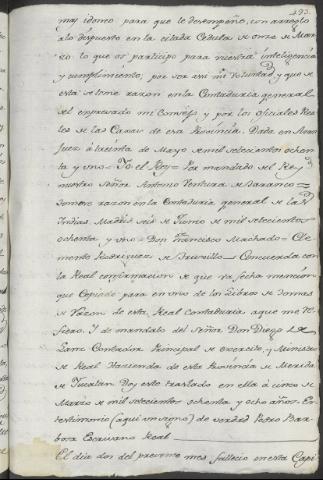 193.
muy idoneo para que le desempeñe, con arreglo
alo dispuesto en la citada Cedula de onze de Mar-
zo lo que os participo para vuestra inteligencia
y cumplimiento, por ser asi mi Voluntad, y que de
esta se tome razon en la Contaduria general
del expresado mi Consejo y por los oficiales Rea-
les de las Caxas de esa Provincia. Dada en Aran-
juez á treinta de Mayo de mil setecientos ochen-
ta y uno = Yo el Rey = Por mandado del Rey
nuestro Señor Antonio Ventura de Taranco =
Tomose razon en la Contaduria general de las
Indias Madrid seis de Junio de mil setecientos
ochenta y uno = Don Francisco Machado = Cle-
mente Rodriguez de Trujillo = Concuerda con
la Real confirmacion de que va fecha mencion
que copiada para en uno de los Libros de tomas
de Razon de esta Real Contaduria aque me re-
fiero. Y de mandato del Señor Don Diego de
Lanz Contador Principal de exercito, y Ministro
de Real Hacienda de esta Provincia de Merida
de Yucatan Doy este traslado en ella á cinco de
Marzo de mil setecientos ochenta y ocho años. En
testimonio (aqui un signo) de verdad Pedro Bar-
bosa Escrivano Real
El dia dos del presente mes fallecio en esta Capi-